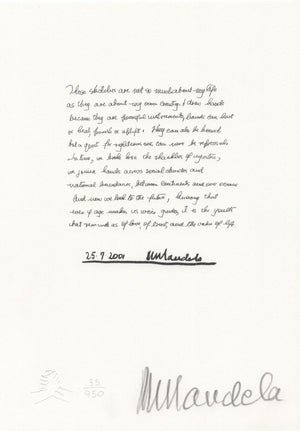 These sketches are not so much about my life
as they are about my own country. I drew hands
because they are powerful instruments, hands can hurt
or heal, punish or uplift. They can also be bound
but a quest for righteousness can never be repressed.
In time, we broke loose the shackles of injustice,
we joined hands across social divides and
national boundaries, between continents and over oceans
and now we look to the future, knowing that
even if age makes us wiser guides, it is the youth
that reminds us of love, of trust and the value of life
25·7·2001 NMandela
35
950
NMandela